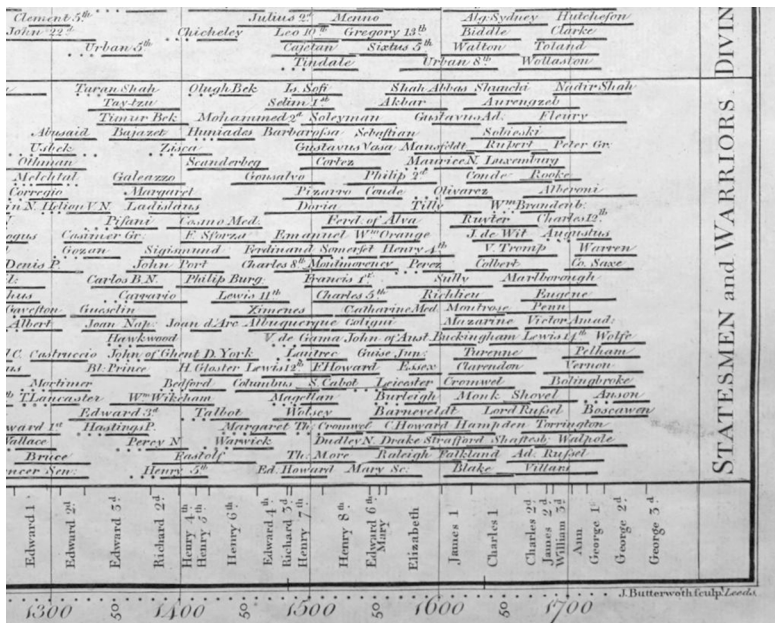 Clement 5th. Julius 2d Menno Alg: Sydney Hutcheson
John 22d Chicheley Leo 10th Gregory 13th Biddle Clarke
Urban 5th Cajetan Sixtus 5th Walton Toland
Tindale Urban 8th Wollaston
DIVIN
Turan Shah Olugh Bek Is. Sofi Shah Abbas Shunchi Nadir Shah
Tay-tzu Selim 1st Akbar Aurengzeb
Timur Bek Mohammed 2d Soleyman Gustavus Ad. Fleury
Abusaid Bajazet Huniades Barbarossa Sebastian Sobieski
Usbek Zisca Gustavus Vasa Mansfeldt Rupert Peter Gr.
Othman Scanderbeg Cortez Maurice N. Luxemburg
Melchtal Galeazzo Gonsalvo Philip 2d Conde Rooke
Corregio Margaret Pizarro Conde Olivarez Alberoni
in N. Helion V.N Ladislaus Doria Tilly Wm Brandenb:
Pisani Cosmo Med. Ferd. of Alva Ruyter Charles 12th
ogus Casimer Gr. F. Sforza Emanuel Wm Orange J. de Wit Augustus
Gozan Sigismund Ferdinand Somerset Henry 4th V. Tromp Warren
Denis P. John Port Charles 8th Montmorency Perez Colbert Co. Saxe
Carlos B.N. Philip Burg Francis 1st Sully Marlborough
hus Carrario Lewis 11th Charles 5th Richlieu Eugene
Gaveston Guesclin Ximenes Catharine Med. Montrose Penn
Albert Joan Nap. Joan d'Arc Albuquerque Coligni Mazarine Victor Amad:
Hawkwood V. de Gama John of Aust. Buckingham Lewis 14th Wolfe
J.C. Castruccio John of Ghent D. York Lautrec Guise Jun: Turenne Pelham
us Bl: Prince H. Gloster Lewis 12th E Howard Essex Clarendon Vernon
Mortimer Bedford Columbus S. Cabot Leicester Cromwel Bolingbroke
T. Lancaster Wm Wikeham Magellan Burleigh Monk Shovel Anson
Edward 3d Talbot Wolsey Barneveldt Lord Russel Boscawen
ward 1st Hastings P. Margaret Th: Cromwel C. Howard Hampden Torrington
Wallace Percy N Warwick Dudley N. Drake Strafford Shaftesb. Walpole
Bruce Fastolf Th: More Raleigh Falkland Ad. Russel
encer Sen: Henry 5th Ed. Howard Mary Sc. Blake Villars
STATESMEN and WARRIORS
Edward 1
Edward 2d
Edward 3d
Richard 2d
Henry 4th
Henry 5th
Henry 6th
Edward 4th
Richard 3d
Henry 7th
Henry 8th
Edward 6th
Mary
Elizabeth
James 1
Charles 1
Charles 2d
James 2d
William 3d
Ann
George 1st
George 2d
George 3d
J. Butterworth sculp. Leeds.
1300 50 1400 50 1500 50 1600 50 1700